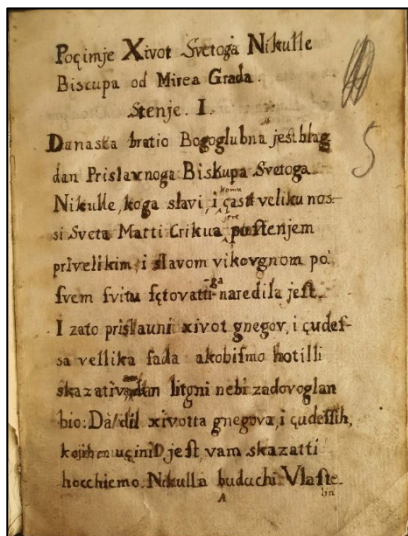 Poçimje Xivot Svetoga Nikulle
Biscupa od Mirea Grada.
Stenje. I.
Danaska bratio Bogoglubna jest blag
dan Prislavnoga Biskupa Svetoga
Nikulle, koga slavi, i çast veliku nos-
si Sveta Matti Crikua, postenjem
privelikim, i slavom vikovgnom po
svem svitu sçtovatti naredila jest.
I zato prislauni xivot gnegov, i çudes-
sa vellika sada akobismo hotilli
skazati dan litgni nebi zadovoglan
bio: Da dil xivotta gnegova, i çudessih,
kojih uçinio jest vam skazatti
hocchiemo. Nikulla buduchi Vlaste-
lin
5